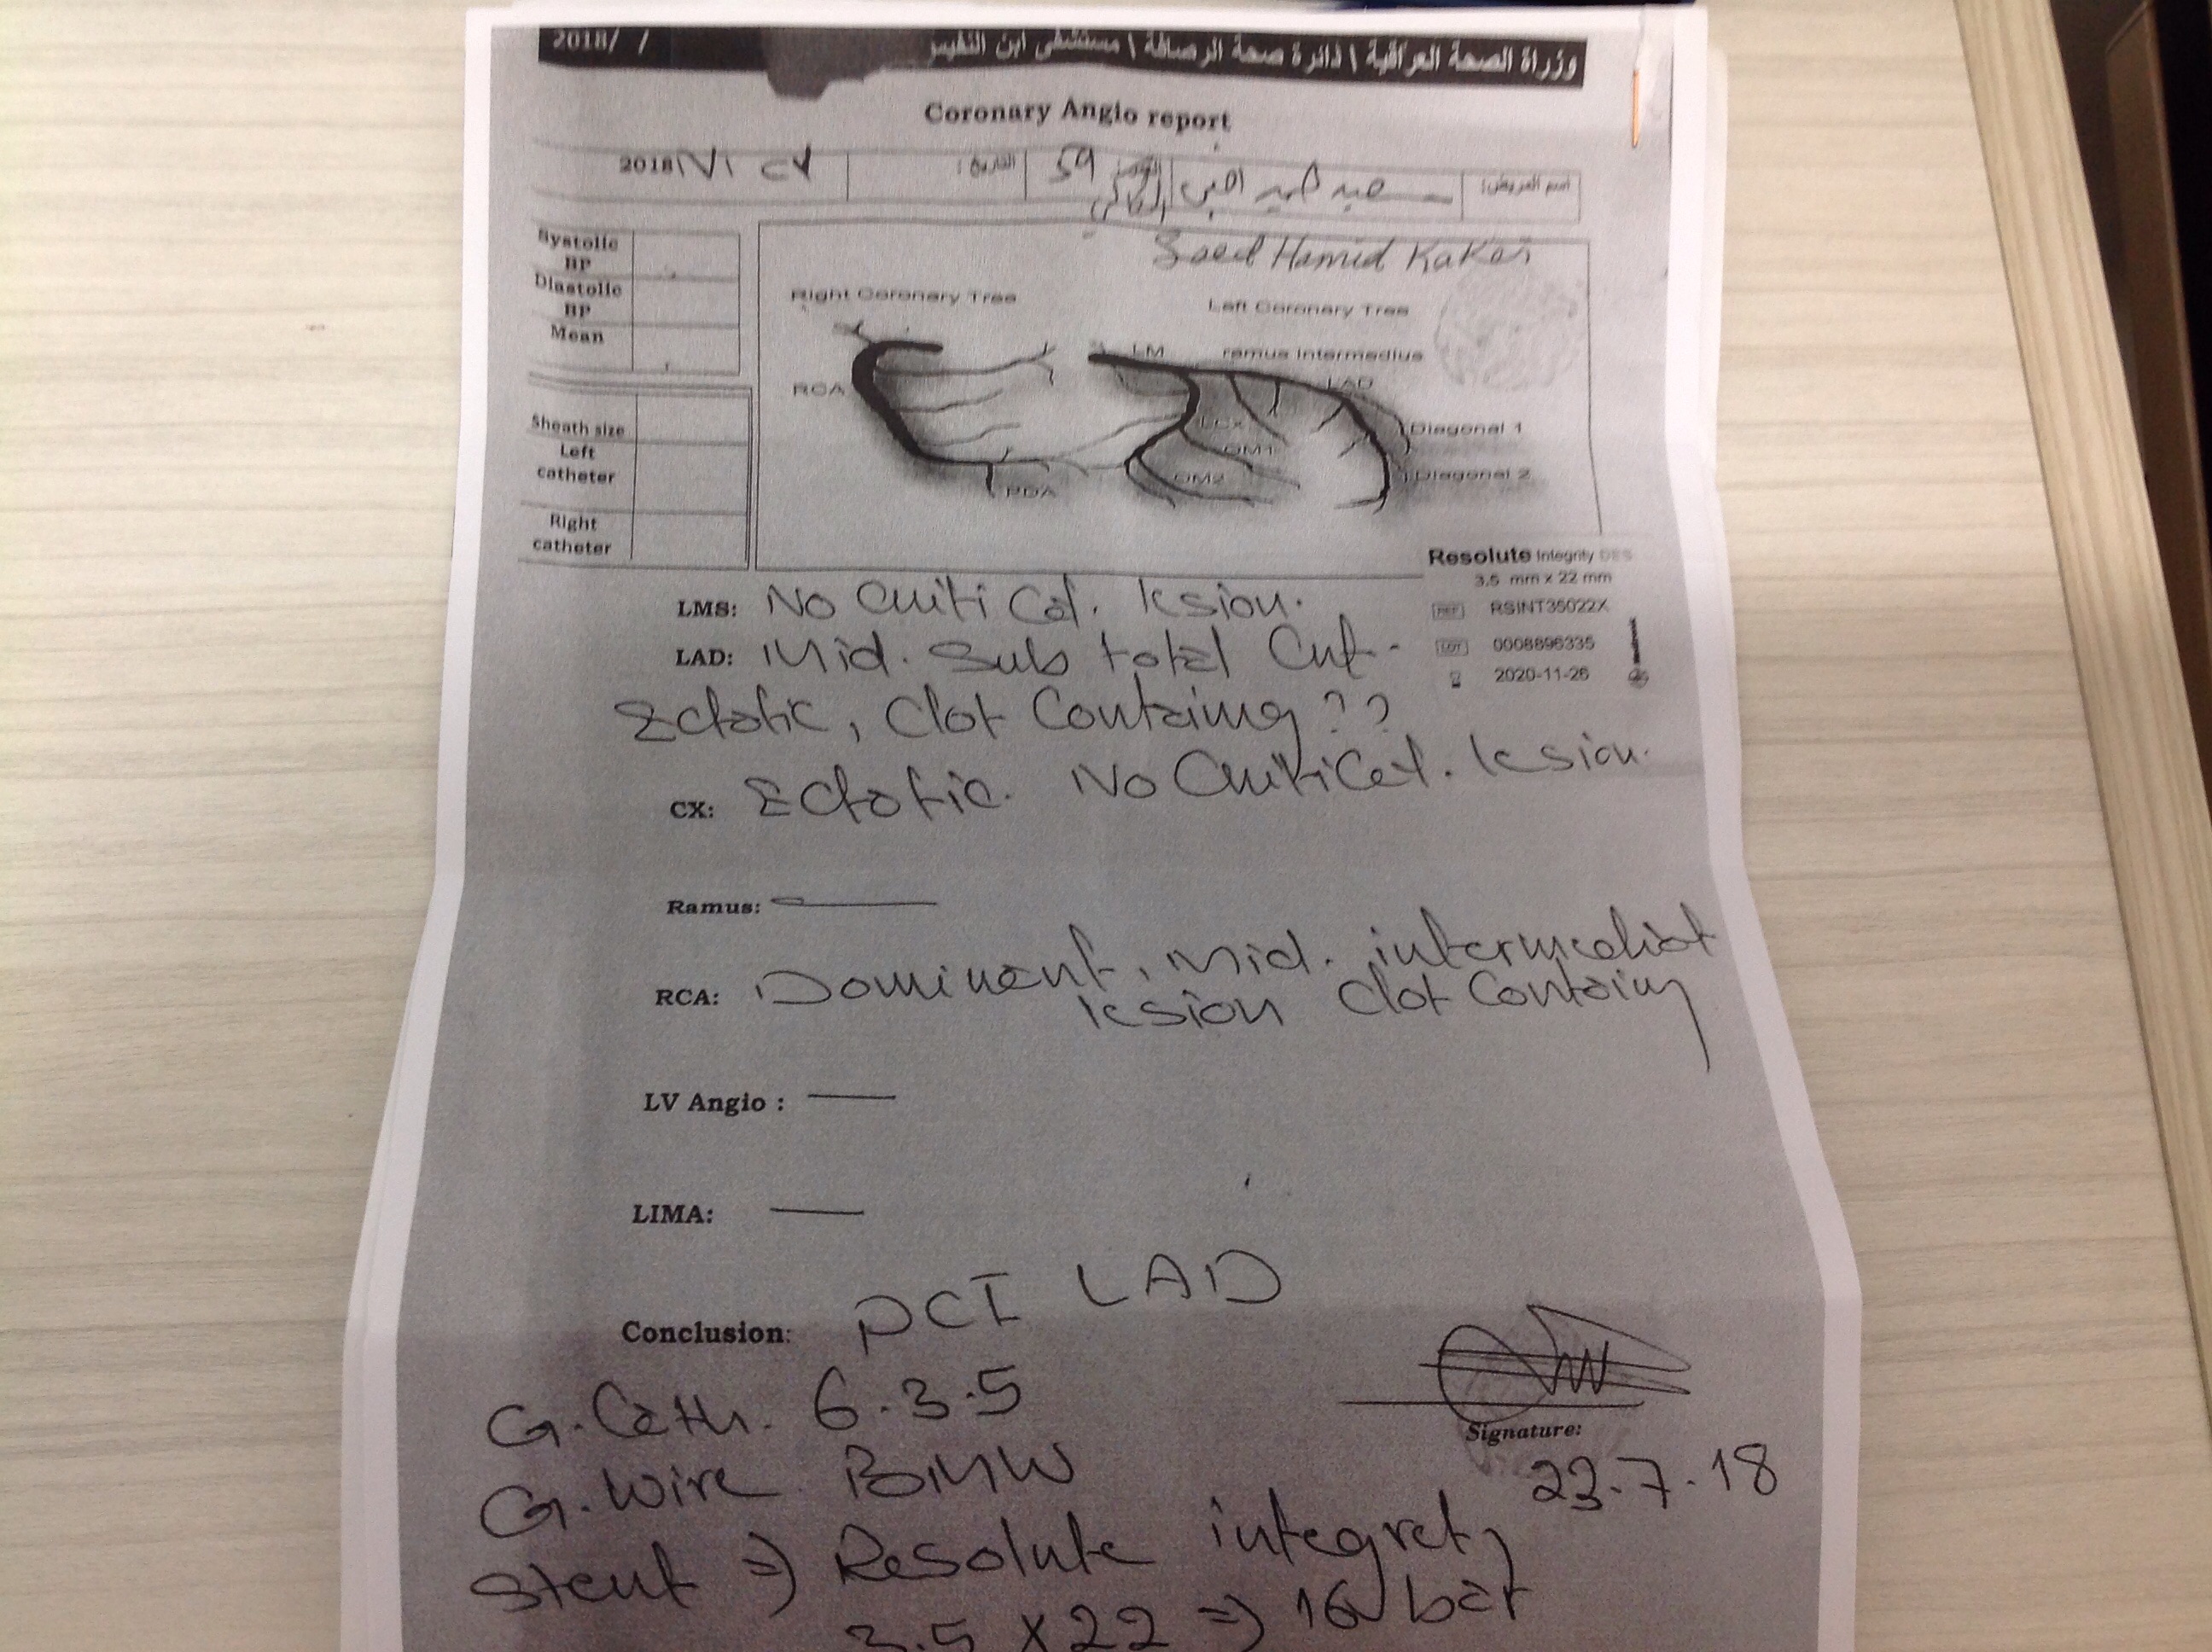 2018/ /
وزارة الصحة العراقية \ دائرة صحة الرصافة \ مستشفى ابن النفيس
Coronary Angio report
اسم المريض:
59
التاريخ:
2018
Saed Hamid Kaker
Systolic BP
Diastolic BP
Mean
Sheath size
Left catheter
Right catheter
Right Coronary Tree
Left Coronary Tree
LM
ramus intermedius
RCA
LAD
LCx
Diagonal 1
OM1
OM2
Diagonal 2
PDA
Resolute Integrity DES
3.5 mm x 22 mm
REF RSINT35022X
LOT 0008896335
2020-11-26
Medtronic
LMS: No Critical. lesion.
LAD: Mid. Sub total
Ectatic, Clot Containing ??
CX: Ectatic. No Critical. lesion.
Ramus:
RCA: Dominent, Mid. intermediat
lesion Clot Containing
LV Angio :
LIMA:
Conclusion: PCI LAD
G. Cath. 6.3.5
Signature:
G. Wire BMW
23.7.18
Stent => Resolute integrety
3.5 x 22 => 16 bar